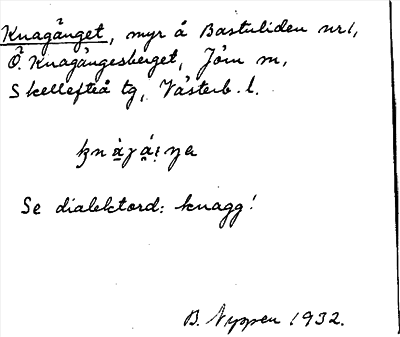 Knagånget, myr å Bastuliden nr 1,
Ö. Knagångesberget, Jörn sn,
Skellefteå tg, Västerb. l.
Se dialektord: knagg!
B. Nyppen 1932.